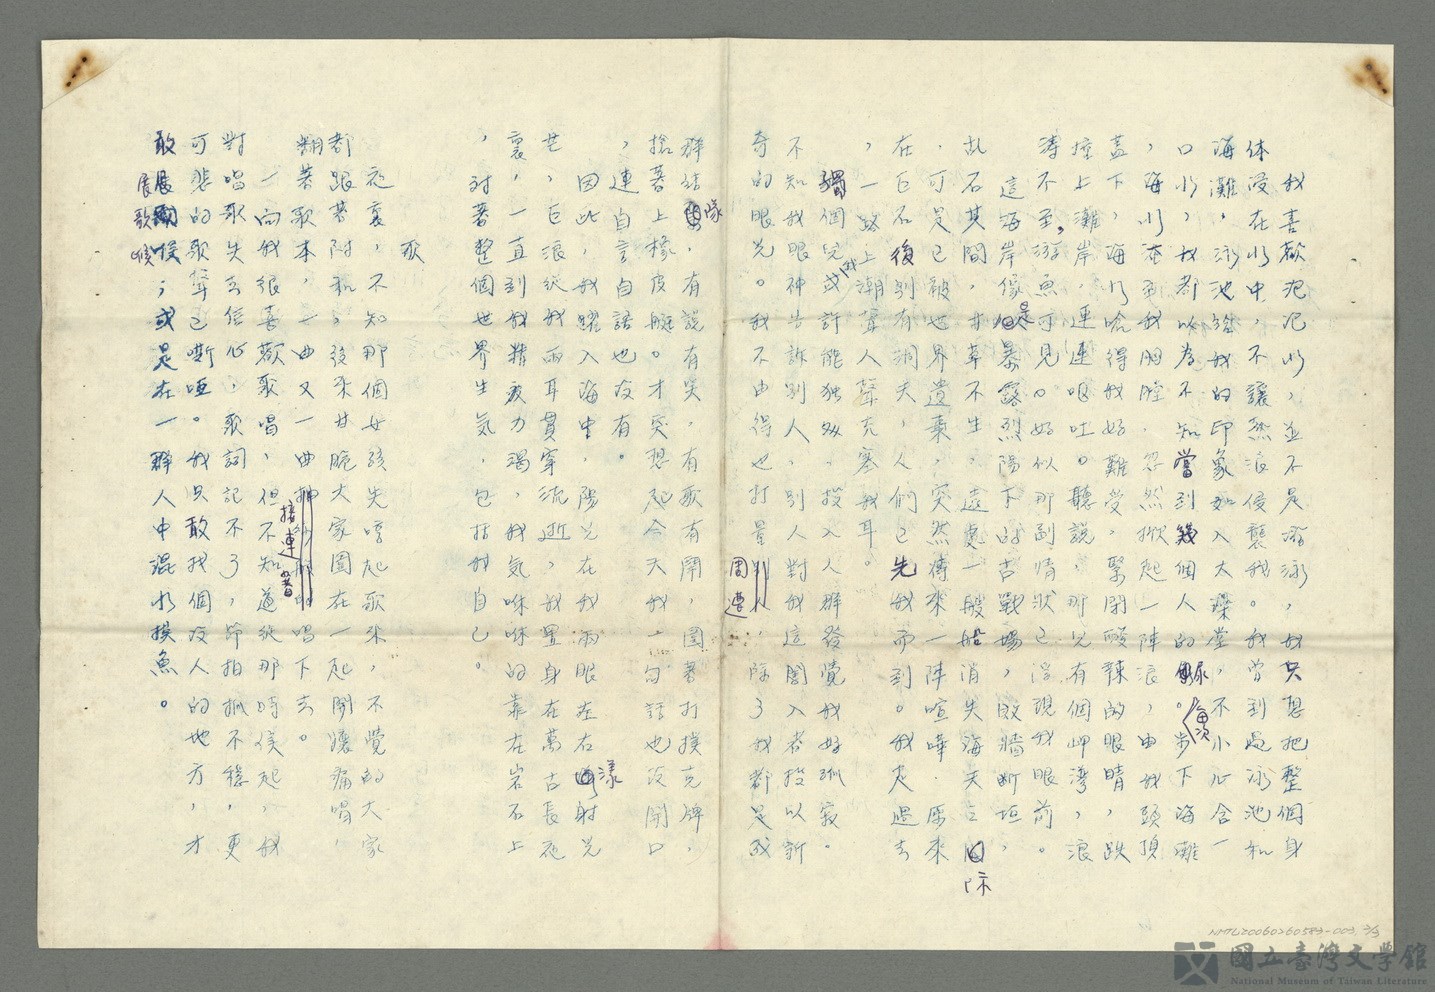 我喜歡泡泡水，並不是游泳，我只想把整個身
体浸在水中，不讓然浪侵襲我。我曾到過泳池和
海灘，泳池給我的印象如入大澡堂，不小心含一
口水，我都以為不知當到幾個人的尿。步下海灘
，海水淹到我胸膛，忽然掀起一陣浪，由我頭頂
蓋下，海水嗆得我好難受，緊閉酸辣的眼睛，跌
撞上灘岸，連連吸吐。聽說，那兒有個岬灣，浪
濤不至，游魚可見。好似那到情狀已浮現我眼前。
這海岸像是暴露烈陽下的古戰場，敗牆斷垣，
乱石其間，寸草不生，遠處一艘船消失海天
，可是已被世界遺棄，突然傳來一陣喧嘩，原來
在巨石後別有洞天，人們已先我而到。我走過去
，一路上潮聲人聲充塞我耳。
獨個兒或許能独处，投入人群發覺我好孤寂。
不知我眼神告訴別人，別人對我這闖入者投以新
奇的眼光。我不由得也打量周遭，除了我都是成
群結隊，有說有笑，有歌有鬧，圍著打撲克牌，
搶著上橡皮艇。才突想起今天我一句話也沒開口
，連自言自語也沒有。
因此，我躍入海中，陽光在我兩眼左右漾射光
芒，巨浪從我兩耳貫穿流逝，我置身在萬古長夜
裏，一直到我精疲力竭，我気咻咻的靠在岩石上
，對著整個世界生氣，包括我自己。
歌
夜裏，不知那個女孩先唱起歌來，不覺的大家
都跟著附和，後來甘脆大家圍在一起開懷痛唱，
翻著歌本，一曲又一曲接連著唱下去。
一向我很喜歡歌唱，但不知道從那時侯起，我
對唱歌失去信心，歌詞記不了，節拍抓不穩，更
可悲的歌聲已嘶啞。我只敢找個沒人的地方，才
敢展歌喉；或是在一群人中混水摸魚。
NMTL20060260583-003, 3/3
國立臺灣文學館
National Museum of Taiwan Literature